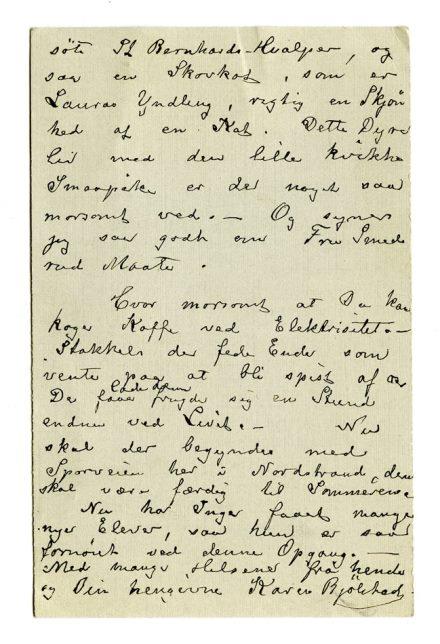 söte St Bernhards-Hvalper, og
saa en Skovkat, som er
Lauras Yndling, rigtig en Skjøn
hed af en Kat. Dette Dyre
liv med den lille kvikke
Smaapike er der noget saa
morsomt ved. — Og synes
jeg saa godt om Fru Smeds
rud Maate.
Hvor morsomt at Du kan
koger Kaffe ved Elektrisitet —
Stakkels de fede Ender som
vente paa at bli spist af
lade dem
De fryde sig en Stund
endnu ved Livet. — Nu
skal der begyndes med
Sporveien her i Nordstrand, den
skal være færdig til Sommeren.
Nu har Inger faaet mange
nye Elever, saa hun er saa
fornøiet ved denne Opgang. —
Med mange Hilsener fra hende
og Din hengivne Karen Bjölstad.